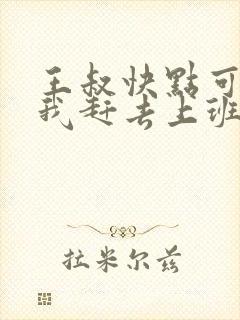 王叔快點可
我赶去上班
拉米尔兹